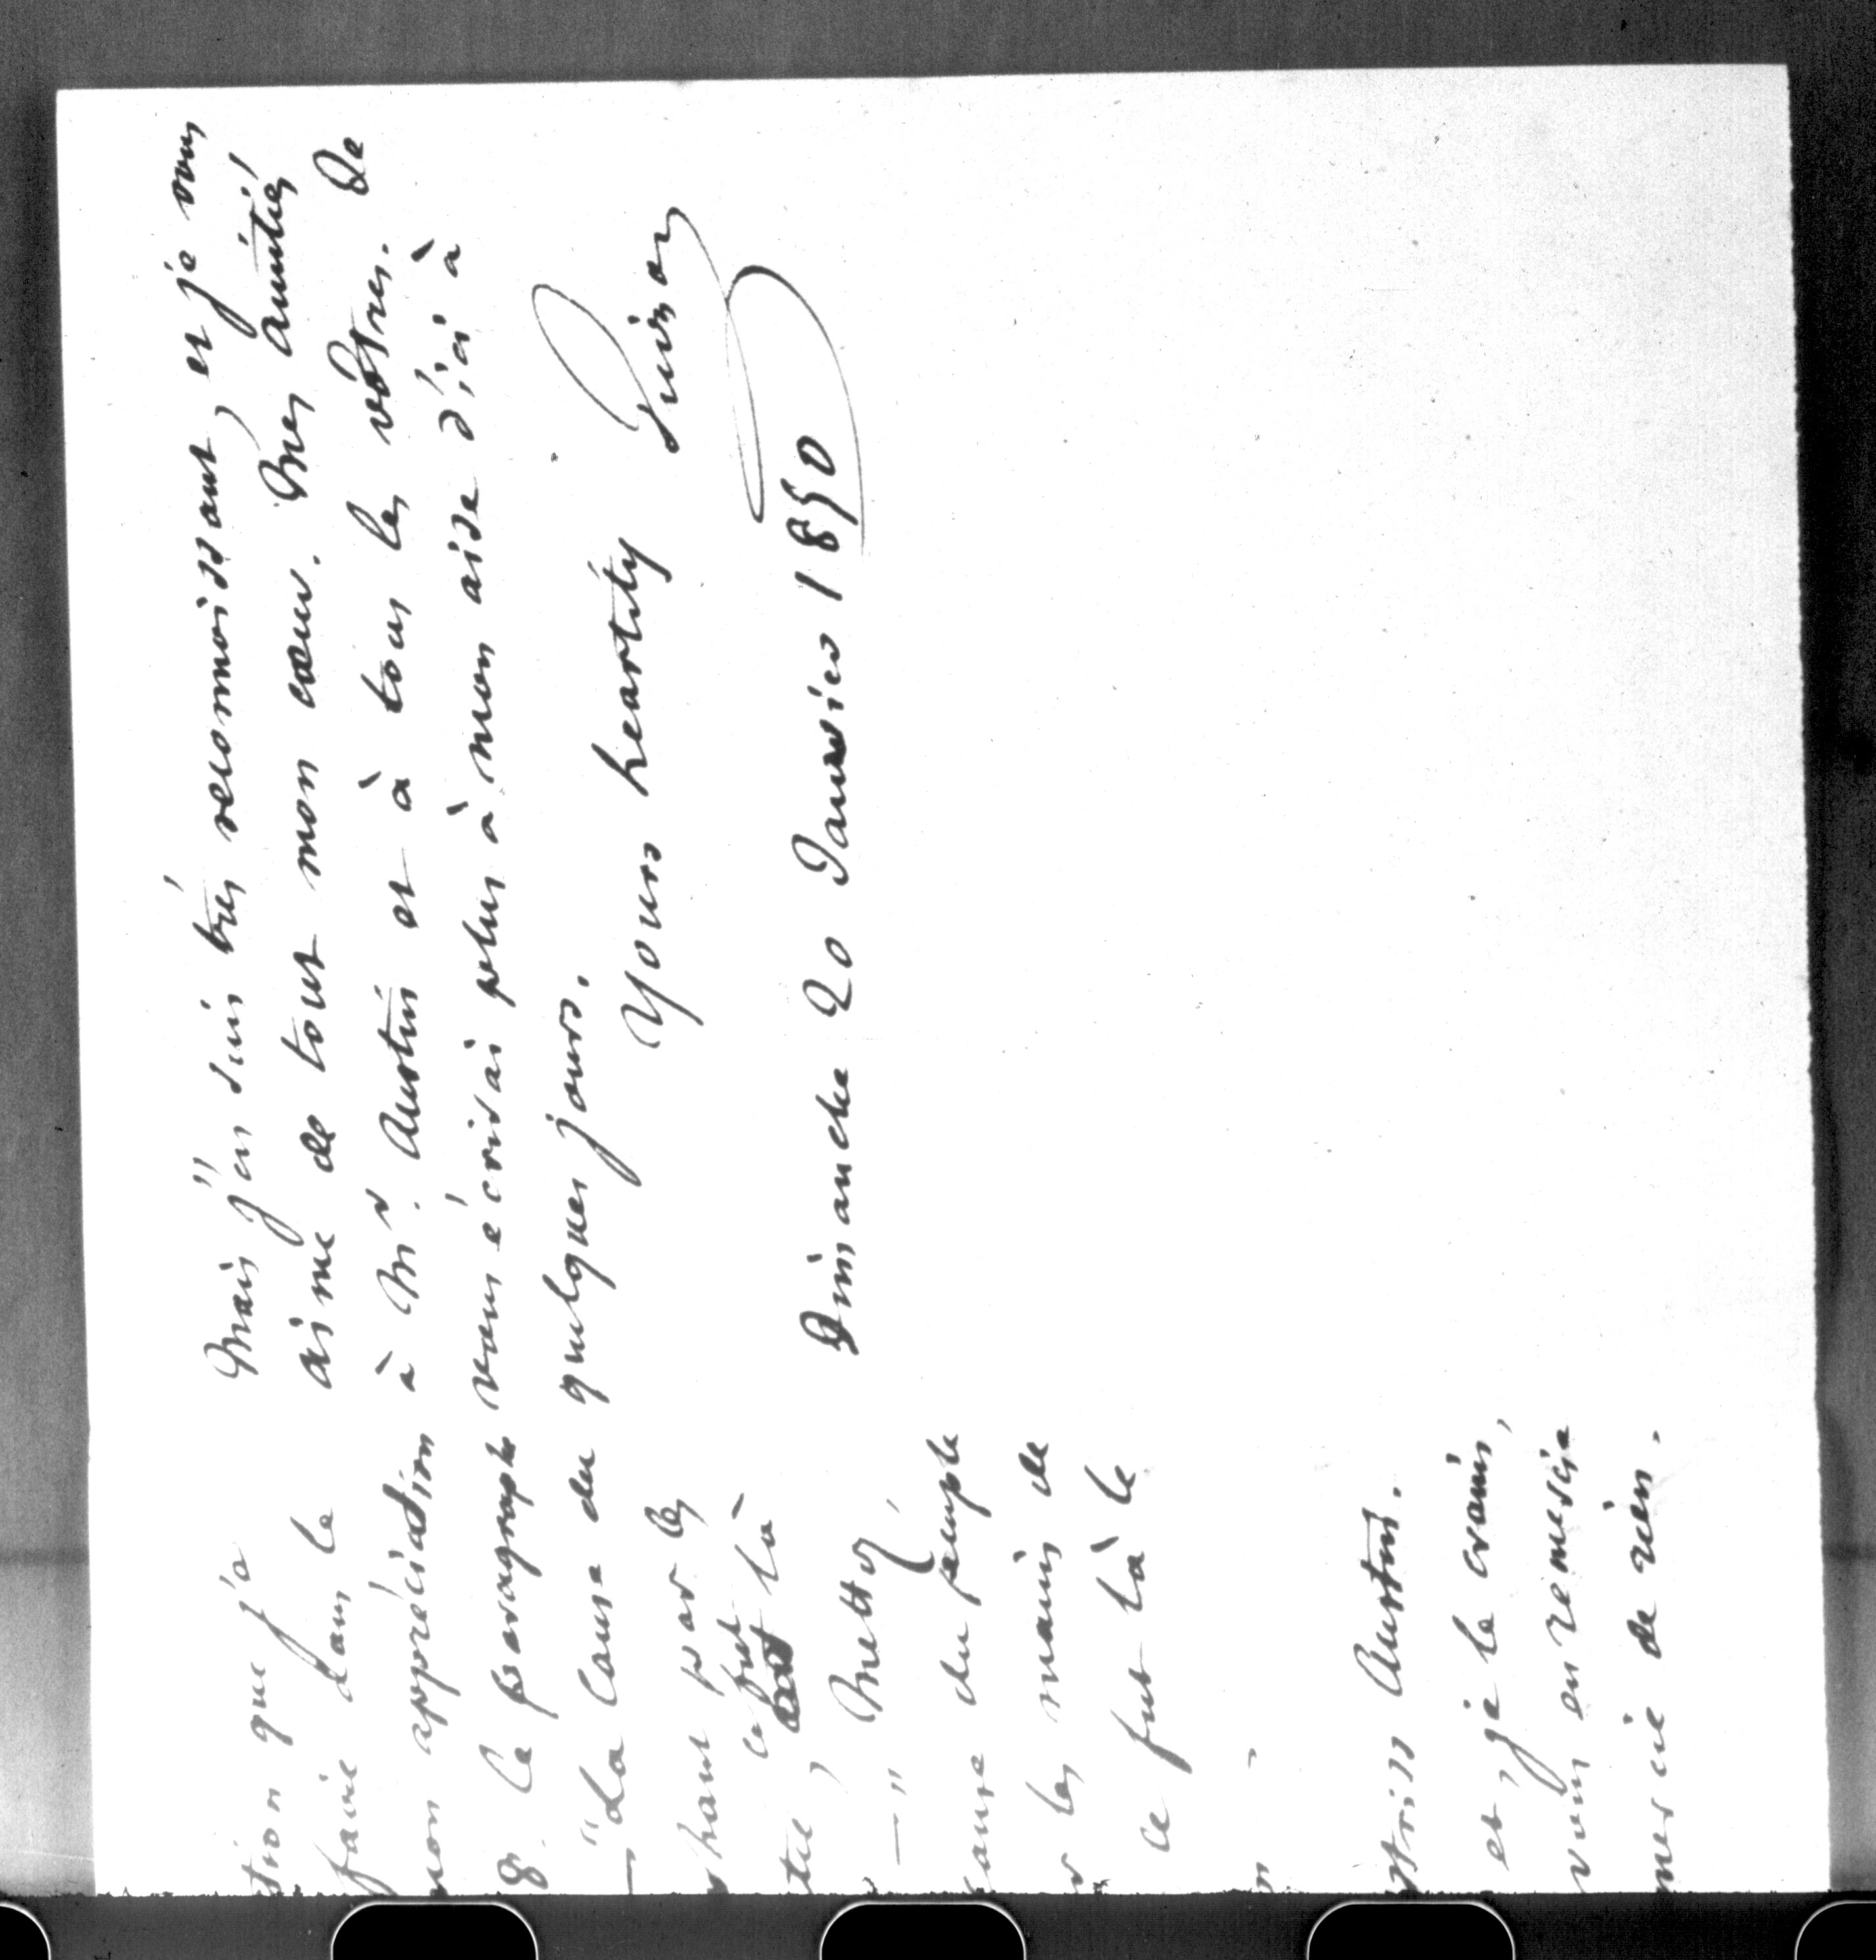 tion que j'a
faire dans le
mon appréciation
8. Le paragraphe
— "La Cause du
chant par les
ce fut là
Mettez
— "
cause du peuple
r les mains de
ce fut là le
Austin.
et, je le crains,
vous en remercie
de rien.
Mais j'en suis très reconnoissant, et je vous
aime de tout mon cœur. Mes amitiés
à Mr. Austin et à tous les vôtres. Je
vous écrirai plus à mon aise d'ici à
quelques jours.
Yours heartily
Guizot
Dimanche 20 Janvier 1850